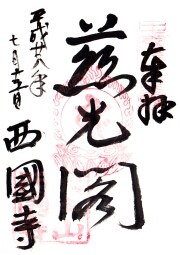 奉拝
慈光閣
平成廿八年
七月十五日
西國寺